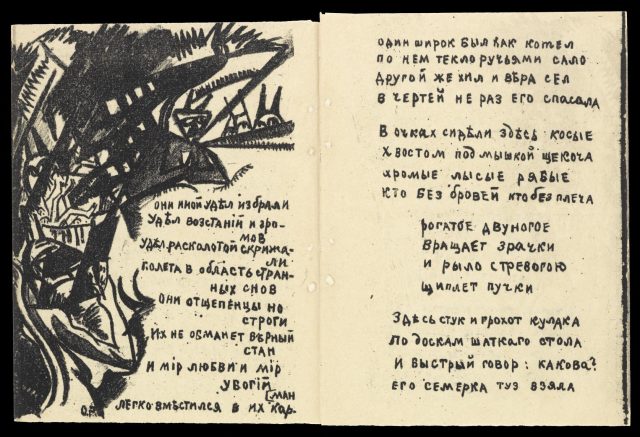 они иной удѣл избрали
удѣл возстаній и гро-
мов
удѣл расколотой скрижа-
ли
полета в область стран-
ных снов
они отщепенцы но
строги
их не обманет вѣрный
стан
и мір любви и мір
убогій
легко вмѣстился в их кар-
ман
один широк был как котел
по нем текло ручьями сало
другой же хил и вѣра сел
в чертей не раз его спасала
в очках сидѣли здѣсь косые
хвостом под мышкой щекоча
хромые лысые рябые
кто без бровей кто без плеча
рогатое двуногое
вращает зрачки
и рыло с тревогою
щиплет пучки
здѣсь стук и грохот кулака
по доскам шаткаго стола
и быстрый говор: какова?
его семерка туз взяла